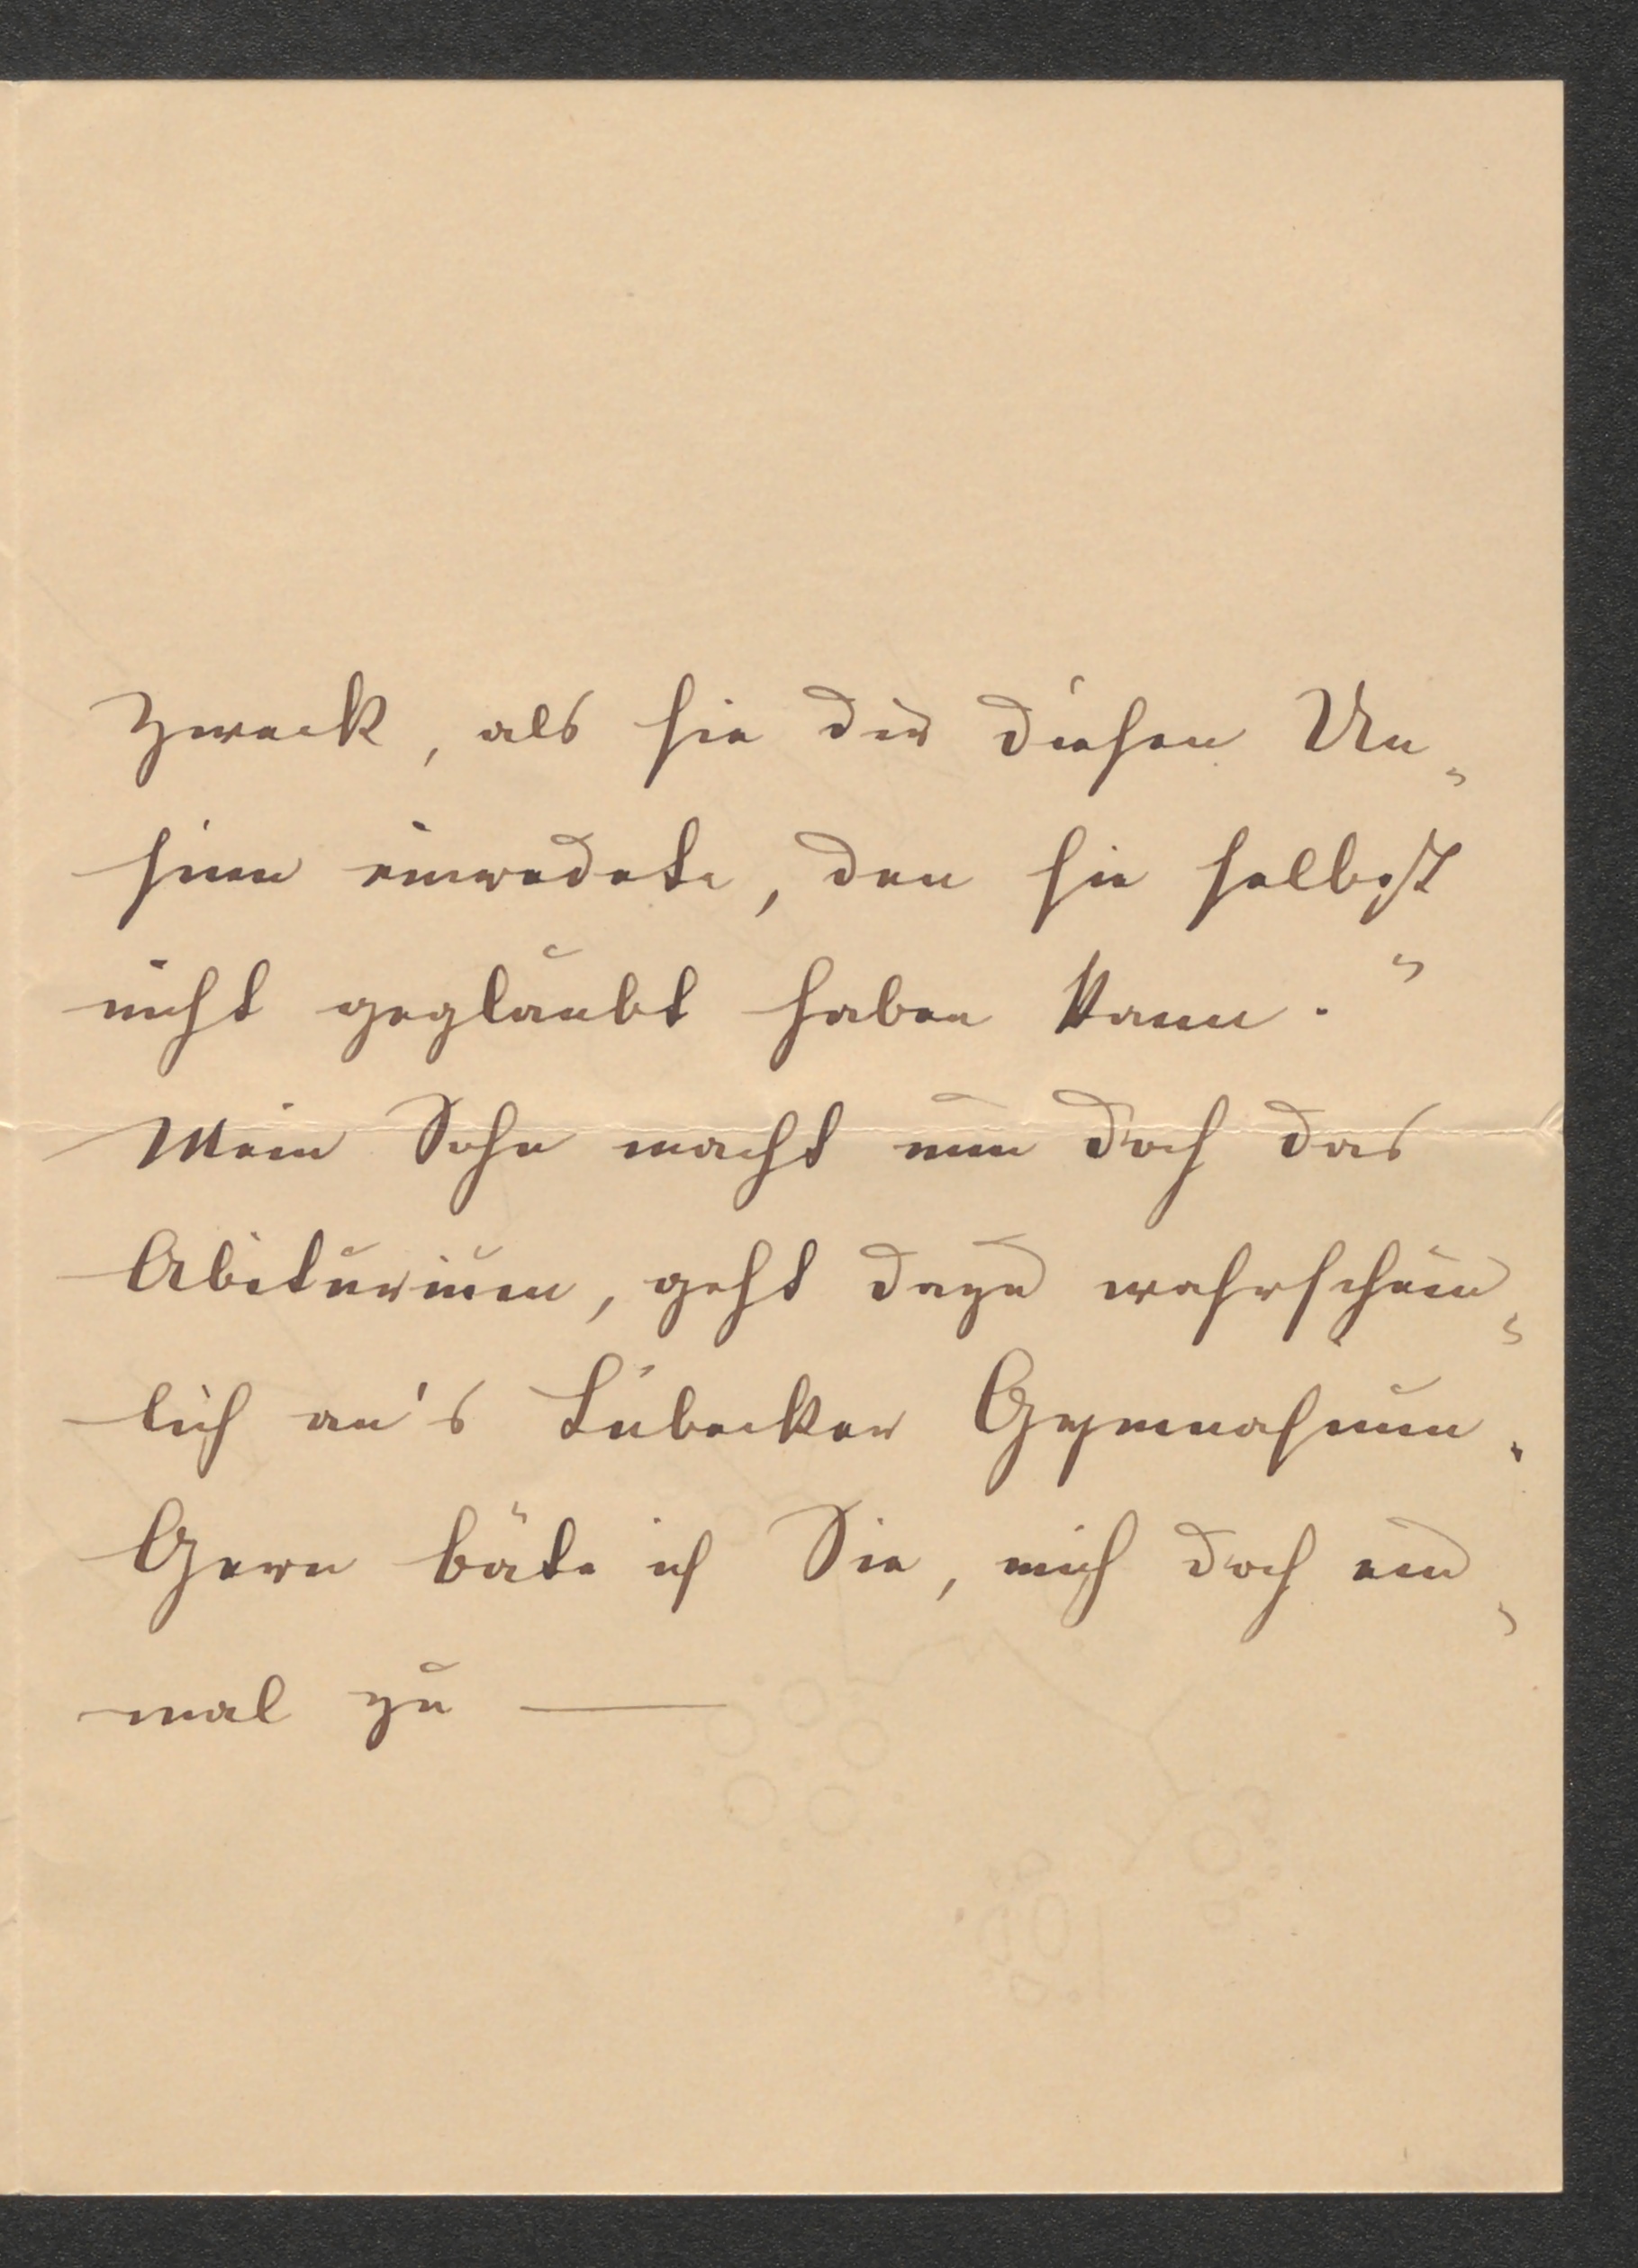 Zweck, als sie dir diesen Un-
sinn einredete, den sie selbst
nicht geglaubt haben kann."
Mein Sohn macht nun doch das
Abiturium, geht dazu wahrschein-
lich an's Lübecker Gymnasium.
Gern bäte ich Sie, mich doch ein-
mal zu —